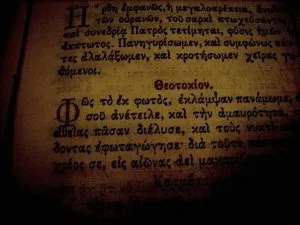 Ἤρθη ἐμφανῶς, ἡ μεγαλοπρέπεια,
τῶν οὐρανῶν, τοῦ σαρκὶ πτωχεύσαντος
καὶ συνεδρία Πατρὸς τετίμηται, φύσις ἡμῶν
ἔκπτωτος. Πανηγυρίσωμεν, καὶ συμφώνως πάν
τες ἀλαλάξωμεν, καὶ κροτήσωμεν χεῖρας γη
θόμενοι.
Θεοτοκίον.
Φῶς τὸ ἐκ φωτός, ἐκλάμψαν πανάμωμε,
σοῦ ἀνέτειλε, καὶ τὴν ἀμαυρότητα,
ἀθεΐας πᾶσαν διέλυσε, καὶ τοὺς νυκτὶ
δοντας ἐφωταγώγησε· διὰ τοῦτο
χρέος σε, εἰς αἰῶνας ἀεὶ
Καταβασ